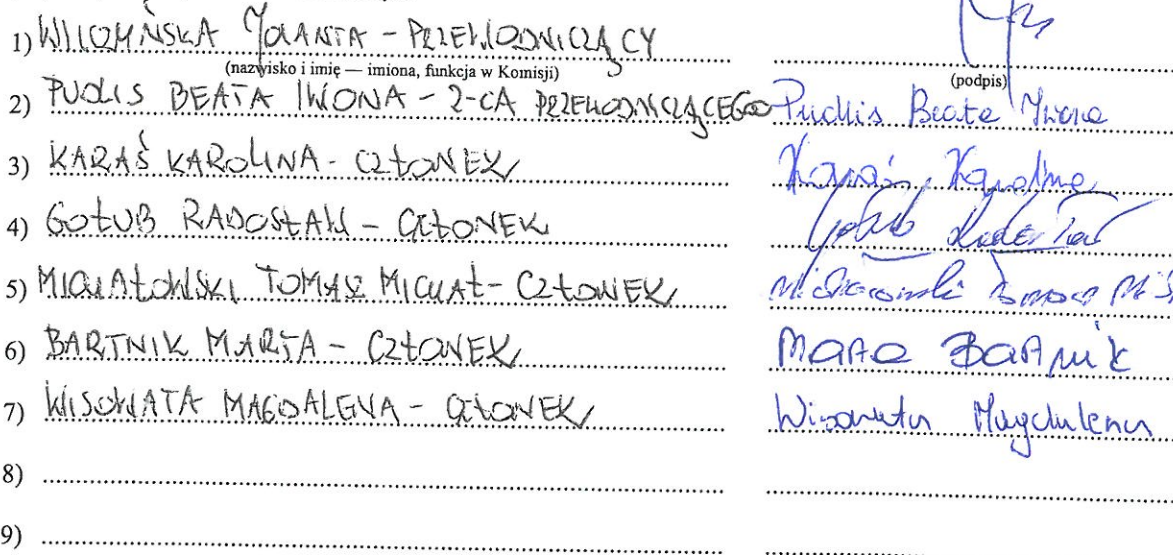 1) WILCZYŃSKA JOLANTA - PRZEWODNICZĄCY
(nazwisko i imię — imiona, funkcja w Komisji)
(podpis)
2) PUDLIS BEATA IWONA - Z-CA PRZEWODNICZĄCEGO Pudlis Beata Iwona
3) KARAŚ KAROLINA - CZŁONEK Karaś Karolina
4) GOŁUB RADOSŁAW - CZŁONEK Gołub Radosław
5) MICHAŁOWSKI TOMASZ MICHAŁ - CZŁONEK Michałowski Tomasz
6) BARTNIK MARTA - CZŁONEK Marta Bartnik
7) WISOWATA MAGDALENA - CZŁONEK Wisowata Magdalena
8)
9)